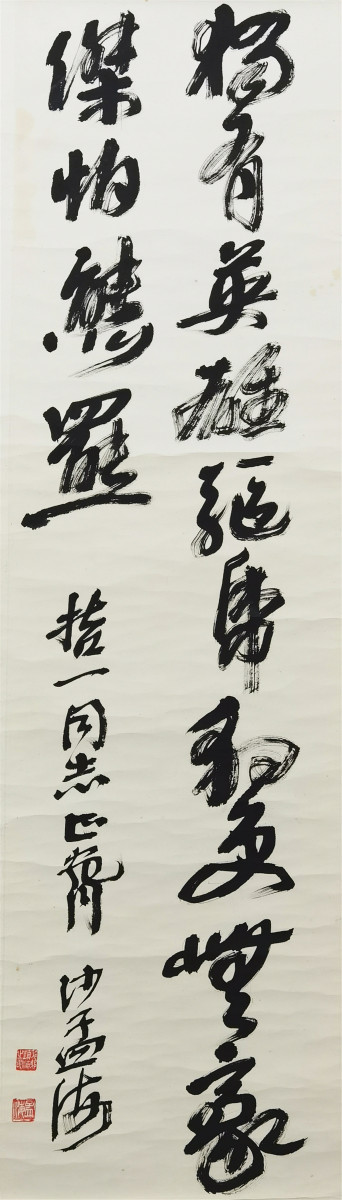 獨有英雄驅虎豹更無豪
傑怕熊羆 一同志正 沙孟海